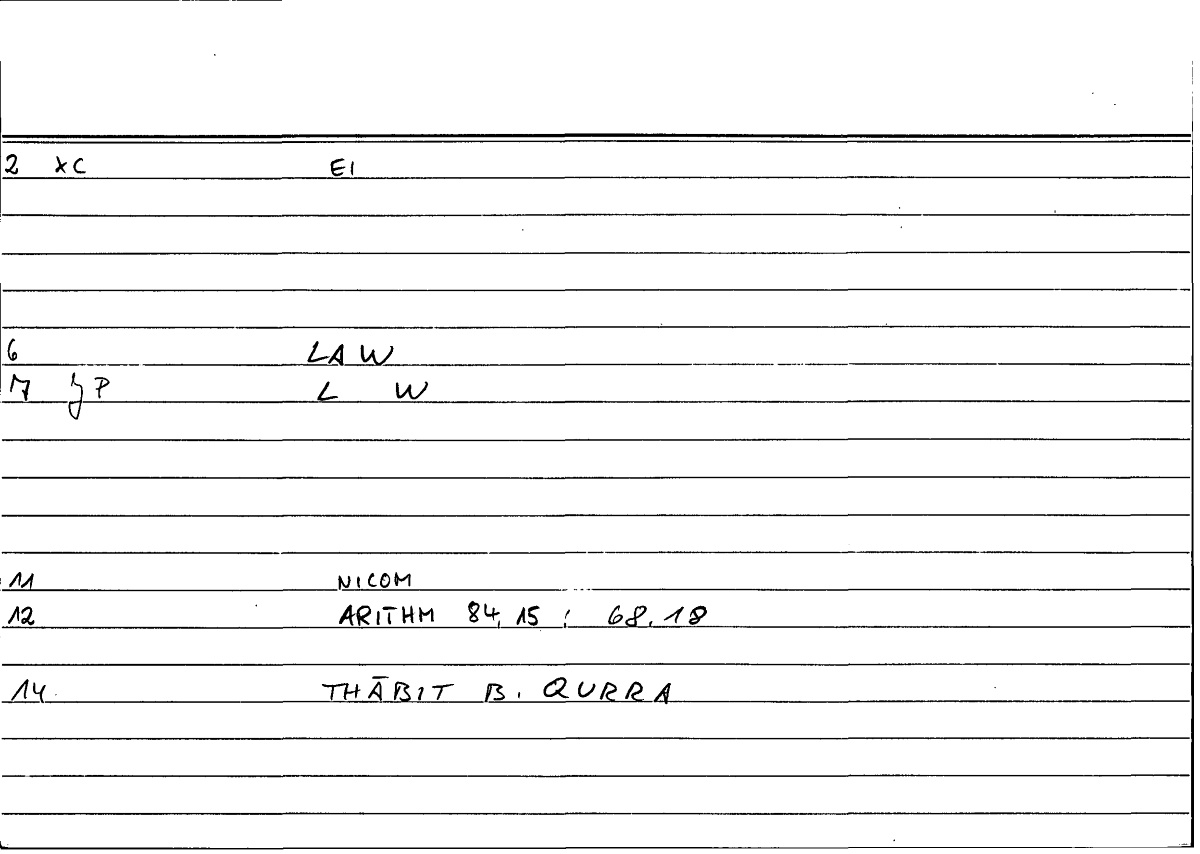 2 xC EI
6 LAW
7 P L W
11 NICOM
12 ARITHM 84,15 ; 68.18
14 THĀBIT B. QURRA